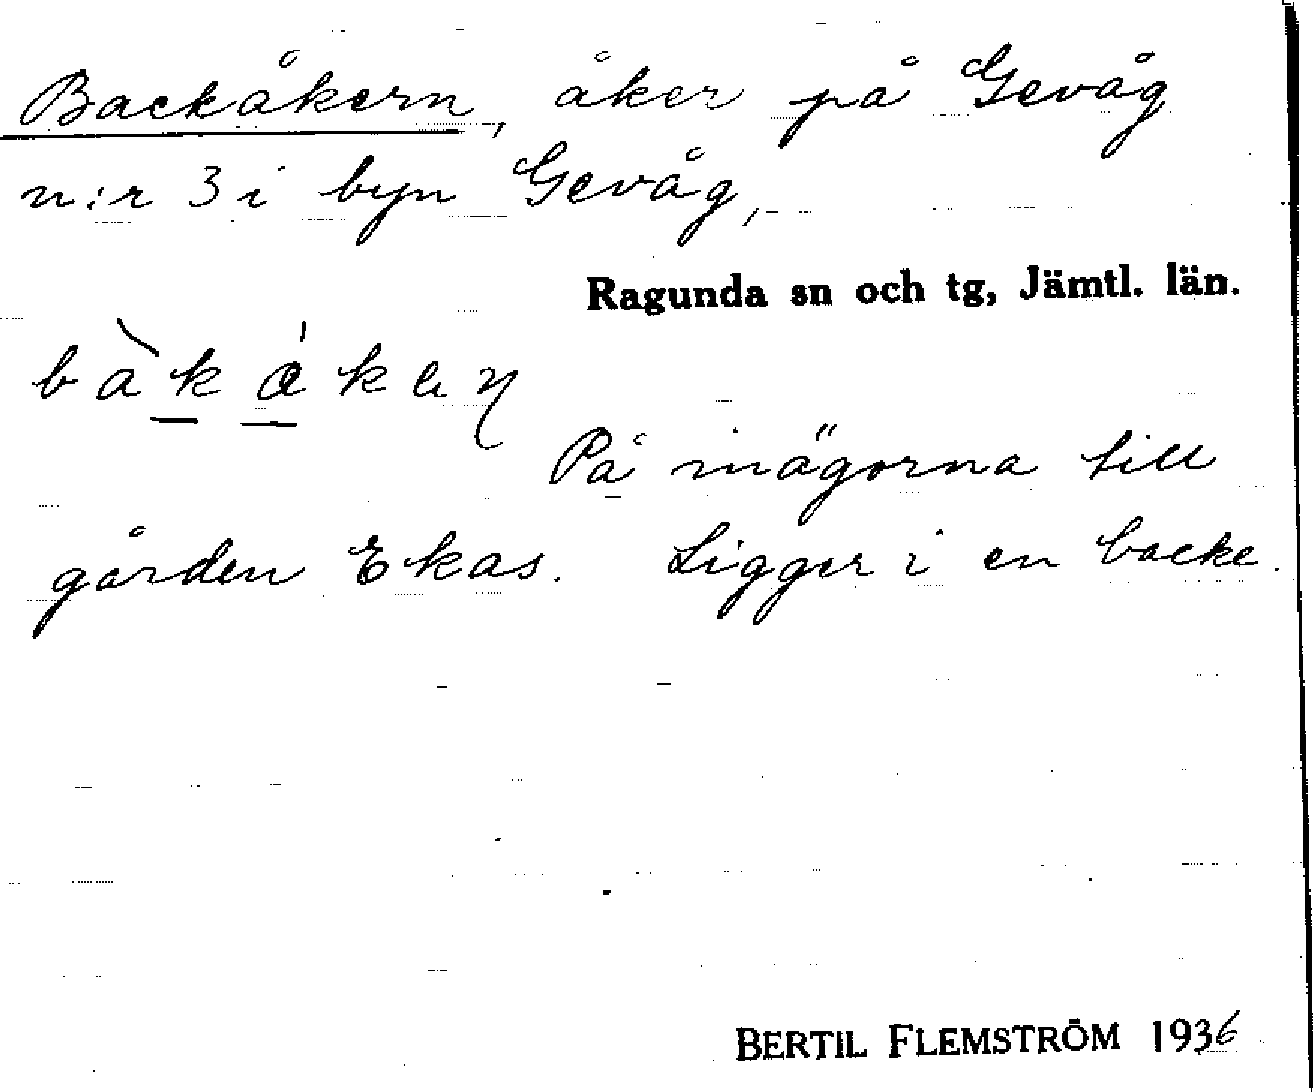 Backåkern, åker på Gevåg
n:r 3 i byn Gevåg,
Ragunda sn och tg, Jämtl. län.
På inägorna till
gården Ekas. Ligger i en backe.
BERTIL FLEMSTRÖM 1936